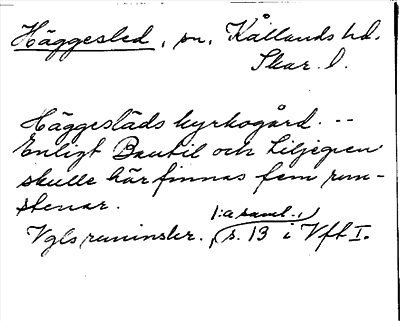 Häggesled, sn, Kållands hd.
Skar. l.
Häggesläds kyrkogård. --
Enligt Bautil och Liljegren
skulle här finnas fem run-
stenar.
1:a saml.,
Vgls runinskr., s. 13 i Vft I.